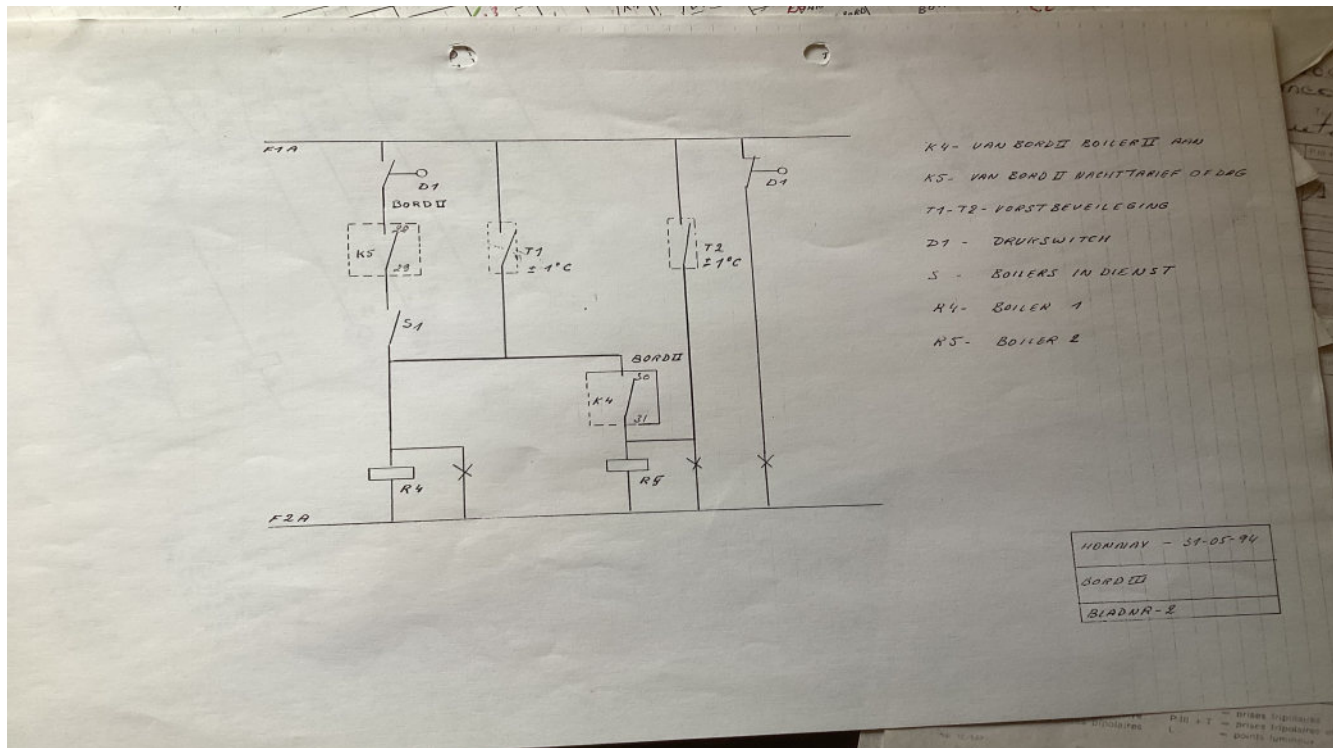 F1A
D1
BORD II
K5
30
29
T1
± 1°C
S1
T2
± 1°C
D1
BORD II
K4
30
31
R4
R5
F2A
K4- VAN BORD II BOILER II AAN
K5- VAN BORD II NACHTTARIEF OF DAG
T1-T2- VORSTBEVEILEGING
D1 - DRUKSWITCH
S - BOILERS IN DIENST
R4- BOILER 1
R5- BOILER 2
HONNAY - 31-05-94
BORD III
BLADNR-2
prises tripolaires
P.III + T - prises tripolaires
L - points lumineux